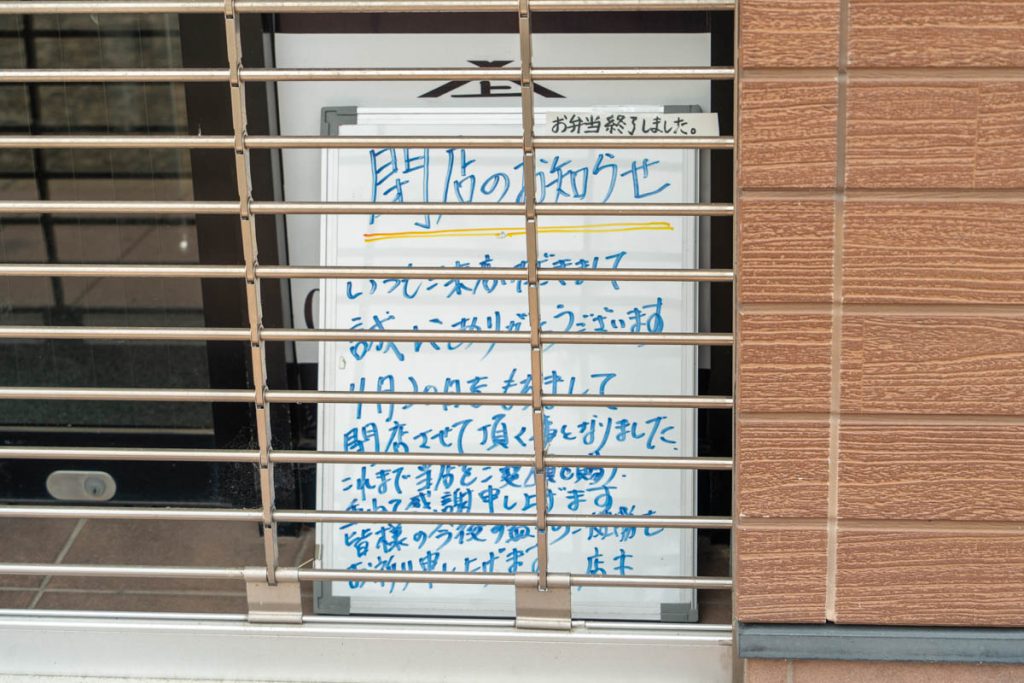 上
お弁当終了しました。
閉店のお知らせ
いつもご来店いただきまして
誠にありがとうございます
月20日をもちまして
閉店させて頂く事となりました
これまで当店をご愛顧
感謝申し上げます
皆様の今後の
お祈り申し上げます 店主